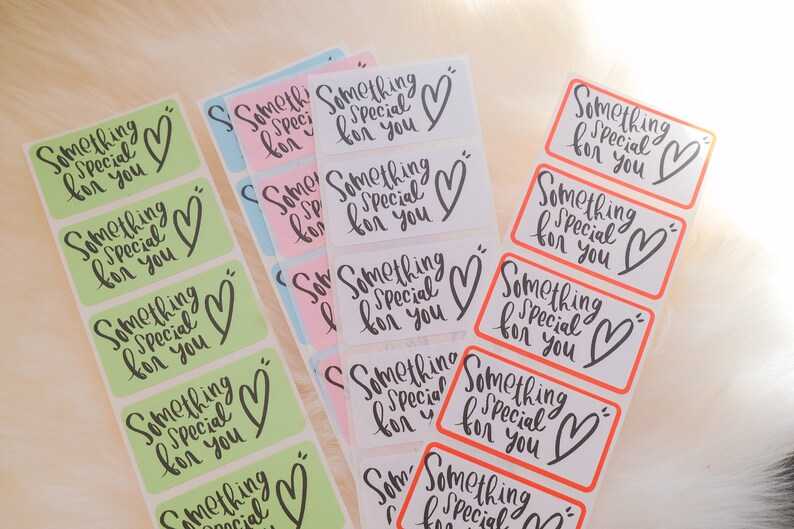 Something
special
for you
Something
special
for you
Something
special
for you
Something
special
for you
Something
special
Something
special
for you
Something
special
for you
Something
special
for you
Something
special
for you
Something
special
for you
Something
special
for you
Something
special
for you
Something
special
for you
Something
special
for you
Something
special
for you
Something
special
for you